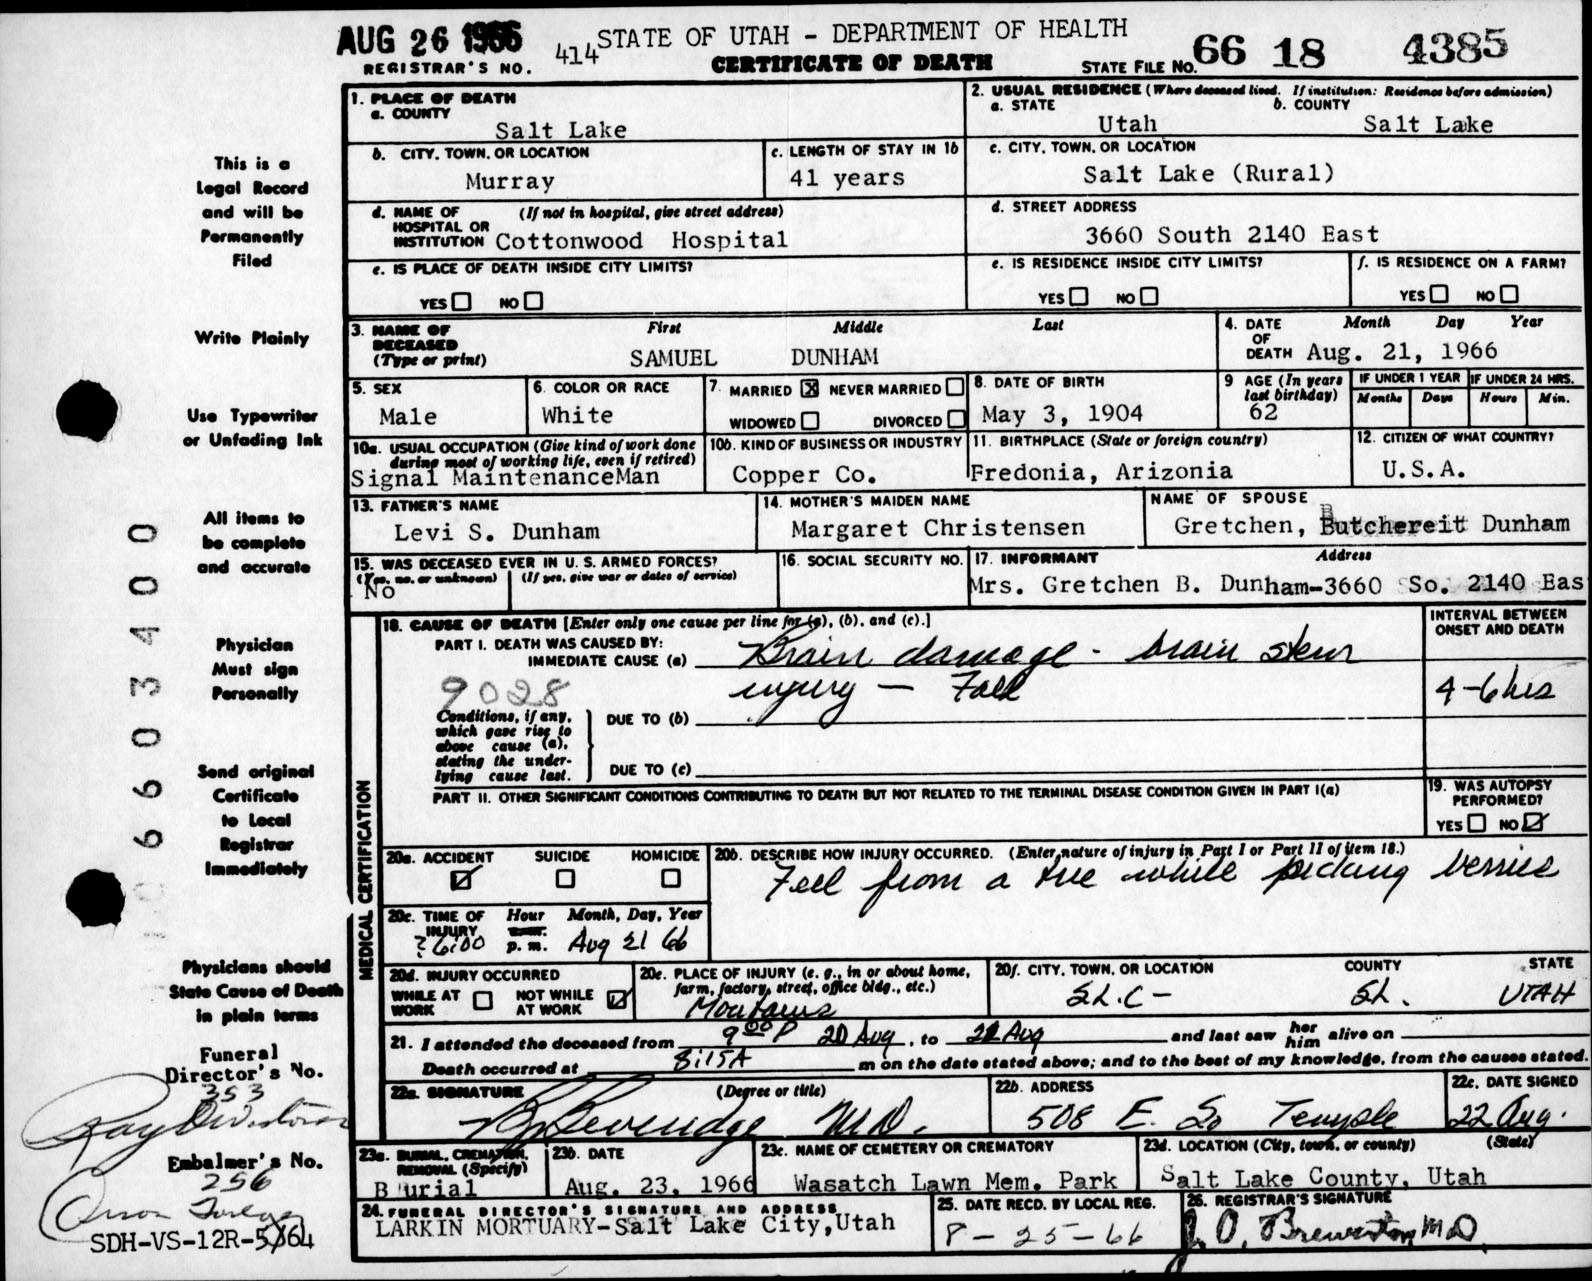 AUG 26 1966
414 STATE OF UTAH - DEPARTMENT OF HEALTH
REGISTRAR'S NO.
CERTIFICATE OF DEATH
STATE FILE NO. 66 18 4385
1. PLACE OF DEATH
a. COUNTY
Salt Lake
2. USUAL RESIDENCE (Where deceased lived. If institution: Residence before admission)
a. STATE b. COUNTY
Utah Salt Lake
b. CITY, TOWN, OR LOCATION
Murray
c. LENGTH OF STAY IN 1b
41 years
c. CITY, TOWN, OR LOCATION
Salt Lake (Rural)
d. NAME OF (If not in hospital, give street address)
HOSPITAL OR
INSTITUTION Cottonwood Hospital
d. STREET ADDRESS
3660 South 2140 East
e. IS PLACE OF DEATH INSIDE CITY LIMITS?
YES NO
e. IS RESIDENCE INSIDE CITY LIMITS?
YES NO
f. IS RESIDENCE ON A FARM?
YES NO
3. NAME OF First Middle Last
DECEASED
(Type or print) SAMUEL DUNHAM
4. DATE Month Day Year
OF
DEATH Aug. 21, 1966
5. SEX
Male
6. COLOR OR RACE
White
7. MARRIED X NEVER MARRIED
WIDOWED DIVORCED
8. DATE OF BIRTH
May 3, 1904
9 AGE (In years
last birthday)
62
IF UNDER 1 YEAR IF UNDER 24 HRS.
Months Days Hours Min.
10a. USUAL OCCUPATION (Give kind of work done
during most of working life, even if retired)
Signal MaintenanceMan
10b. KIND OF BUSINESS OR INDUSTRY
Copper Co.
11. BIRTHPLACE (State or foreign country)
Fredonia, Arizonia
12. CITIZEN OF WHAT COUNTRY?
U.S.A.
13. FATHER'S NAME
Levi S. Dunham
14. MOTHER'S MAIDEN NAME
Margaret Christensen
NAME OF SPOUSE
Gretchen, Butchereit Dunham
15. WAS DECEASED EVER IN U. S. ARMED FORCES?
(Yes, no, or unknown) (If yes, give war or dates of service)
No
16. SOCIAL SECURITY NO.
17. INFORMANT Address
Mrs. Gretchen B. Dunham-3660 So. 2140 Eas
18. CAUSE OF DEATH [Enter only one cause per line for (a), (b), and (c).]
INTERVAL BETWEEN
ONSET AND DEATH
PART I. DEATH WAS CAUSED BY:
IMMEDIATE CAUSE (a) Brain damage - brain stem
injury - Fall
4-6 hrs
9028
Conditions, if any,
which gave rise to
above cause (a),
stating the under-
lying cause last.
DUE TO (b)
DUE TO (c)
PART II. OTHER SIGNIFICANT CONDITIONS CONTRIBUTING TO DEATH BUT NOT RELATED TO THE TERMINAL DISEASE CONDITION GIVEN IN PART I(a)
19. WAS AUTOPSY
PERFORMED?
YES NO
MEDICAL CERTIFICATION
20a. ACCIDENT SUICIDE HOMICIDE
20b. DESCRIBE HOW INJURY OCCURRED. (Enter nature of injury in Part I or Part II of item 18.)
Fell from a tree while picking berries
20c. TIME OF Hour Month, Day, Year
INJURY
? 6:00 p. m. Aug 21 66
20d. INJURY OCCURRED
WHILE AT WORK NOT WHILE AT WORK
20e. PLACE OF INJURY (e. g., in or about home,
farm, factory, street, office bldg., etc.)
20f. CITY, TOWN, OR LOCATION COUNTY STATE
S.L.C- S.L. UTAH
21. I attended the deceased from 9 00 P 20 Aug, to 21 Aug and last saw her him alive on
Death occurred at 8:15A m on the date stated above; and to the best of my knowledge, from the causes stated.
22a. SIGNATURE (Degree or title)
Beveridge M.D.
22b. ADDRESS
508 E. So Temple
22c. DATE SIGNED
22 Aug.
23a. BURIAL, CREMATION,
REMOVAL (Specify)
Burial
23b. DATE
Aug. 23, 1966
23c. NAME OF CEMETERY OR CREMATORY
Wasatch Lawn Mem. Park
23d. LOCATION (City, town, or county) (State)
Salt Lake County, Utah
24. FUNERAL DIRECTOR'S SIGNATURE AND ADDRESS
LARKIN MORTUARY-Salt Lake City,Utah
25. DATE RECD. BY LOCAL REG.
8-25-66
26. REGISTRAR'S SIGNATURE
J. O. Brewerton, MD
This is a
Legal Record
and will be
Permanently
Filed
Write Plainly
Use Typewriter
or Unfading Ink
All items to
be complete
and accurate
Physician
Must sign
Personally
Send original
Certificate
to Local
Registrar
Immediately
Physicians should
State Cause of Death
in plain terms
Funeral
Director's No.
353
Embalmer's No.
256
SDH-VS-12R-5/64
6603400